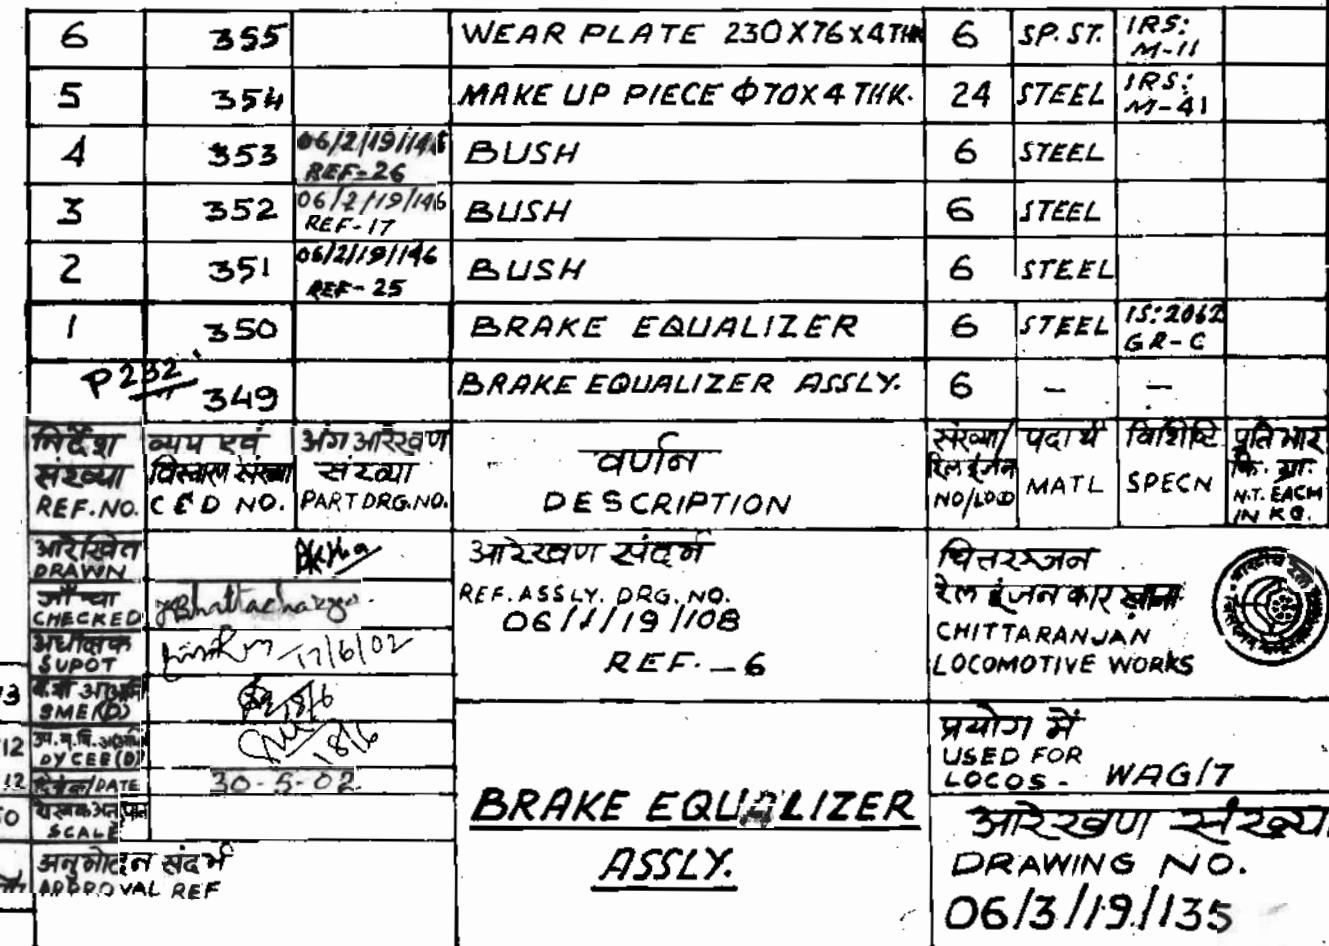 6 355 WEAR PLATE 230X76X4THK 6 SP. ST. IRS: M-11
5 354 MAKE UP PIECE Φ70X4 THK. 24 STEEL IRS: M-41
4 353 06/2/19/146 REF-26 BUSH 6 STEEL
3 352 06/2/19/146 REF-17 BUSH 6 STEEL
2 351 06/2/19/146 REF-25 BUSH 6 STEEL
1 350 BRAKE EQUALIZER 6 STEEL IS:2062 GR-C
P232 349 BRAKE EQUALIZER ASSLY. 6 - -
निर्देश संख्या REF.NO.
व्यय एवं विस्तारण संख्या C&D NO.
अंग आरेखण संख्या PART DRG.NO.
वर्णन DESCRIPTION
संख्या/ रेल इंजन NO/LOCO
पदार्थ MATL
विशिष्टि SPECN
प्रति भार कि. ग्रा. N.T. EACH IN KG.
आरेखित
DRAWN
जाँचा
CHECKED JBhattacharya.
अधीक्षक
SUPDT 17/6/02
SME(D) 18/6
DY CEE(D) 18/6
दिनांक/DATE 30-5-02
SCALE
अनुमोदन संदर्भ
APPROVAL REF
आरेखण संदर्भ
REF. ASSLY. DRG. NO.
06/1/19/108
REF. - 6
BRAKE EQUALIZER
ASSLY.
चित्तरन्जन
रेल इंजन कारखाना
CHITTARANJAN
LOCOMOTIVE WORKS
प्रयोग में
USED FOR
LOCOS - WAG/7
आरेखण संख्या
DRAWING NO.
06/3/19/135